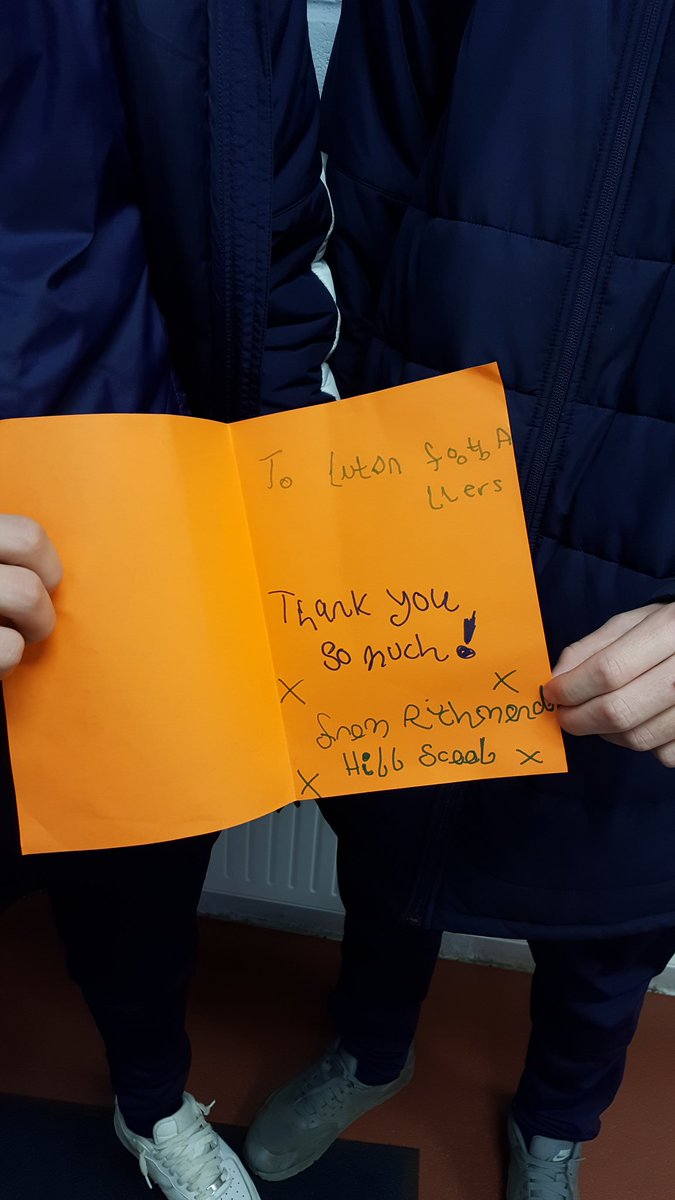 To Luton footbA
llers
Thank you
so much!
X X
from Rithmond
Hill Scool X
X